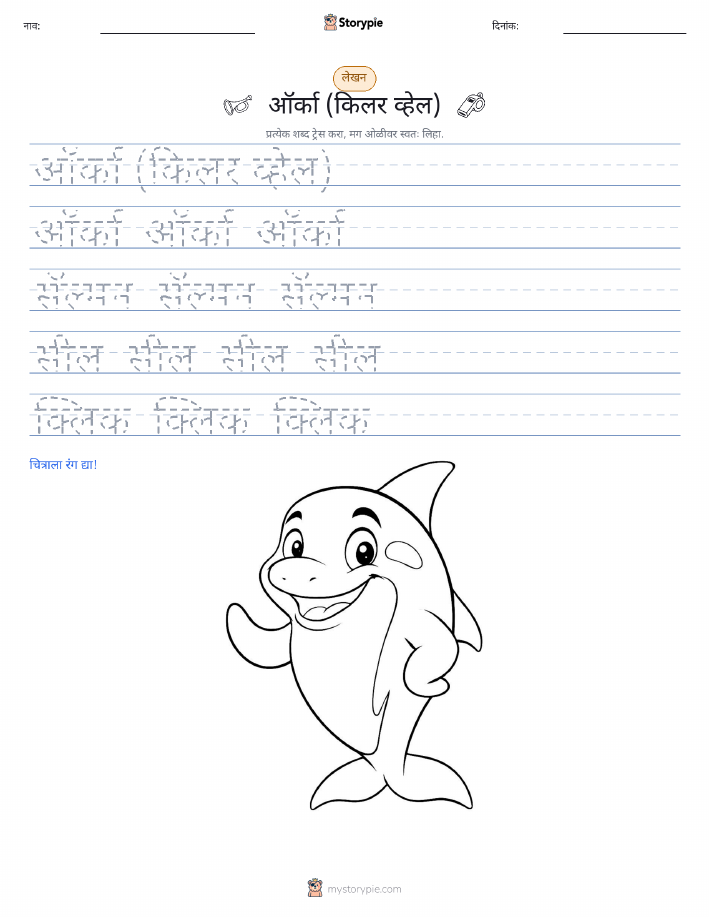 नाव:
Storypie
दिनांक:
लेखन
ऑर्का (किलर व्हेल)
प्रत्येक शब्द ट्रेस करा, मग ओळीवर स्वतः लिहा.
ऑर्का (किलर व्हेल)
ऑर्का ऑर्का ऑर्का
सॅल्मन सॅल्मन सॅल्मन
सील सील सील सील
क्लिक क्लिक क्लिक
चित्राला रंग द्या!
mystorypie.com